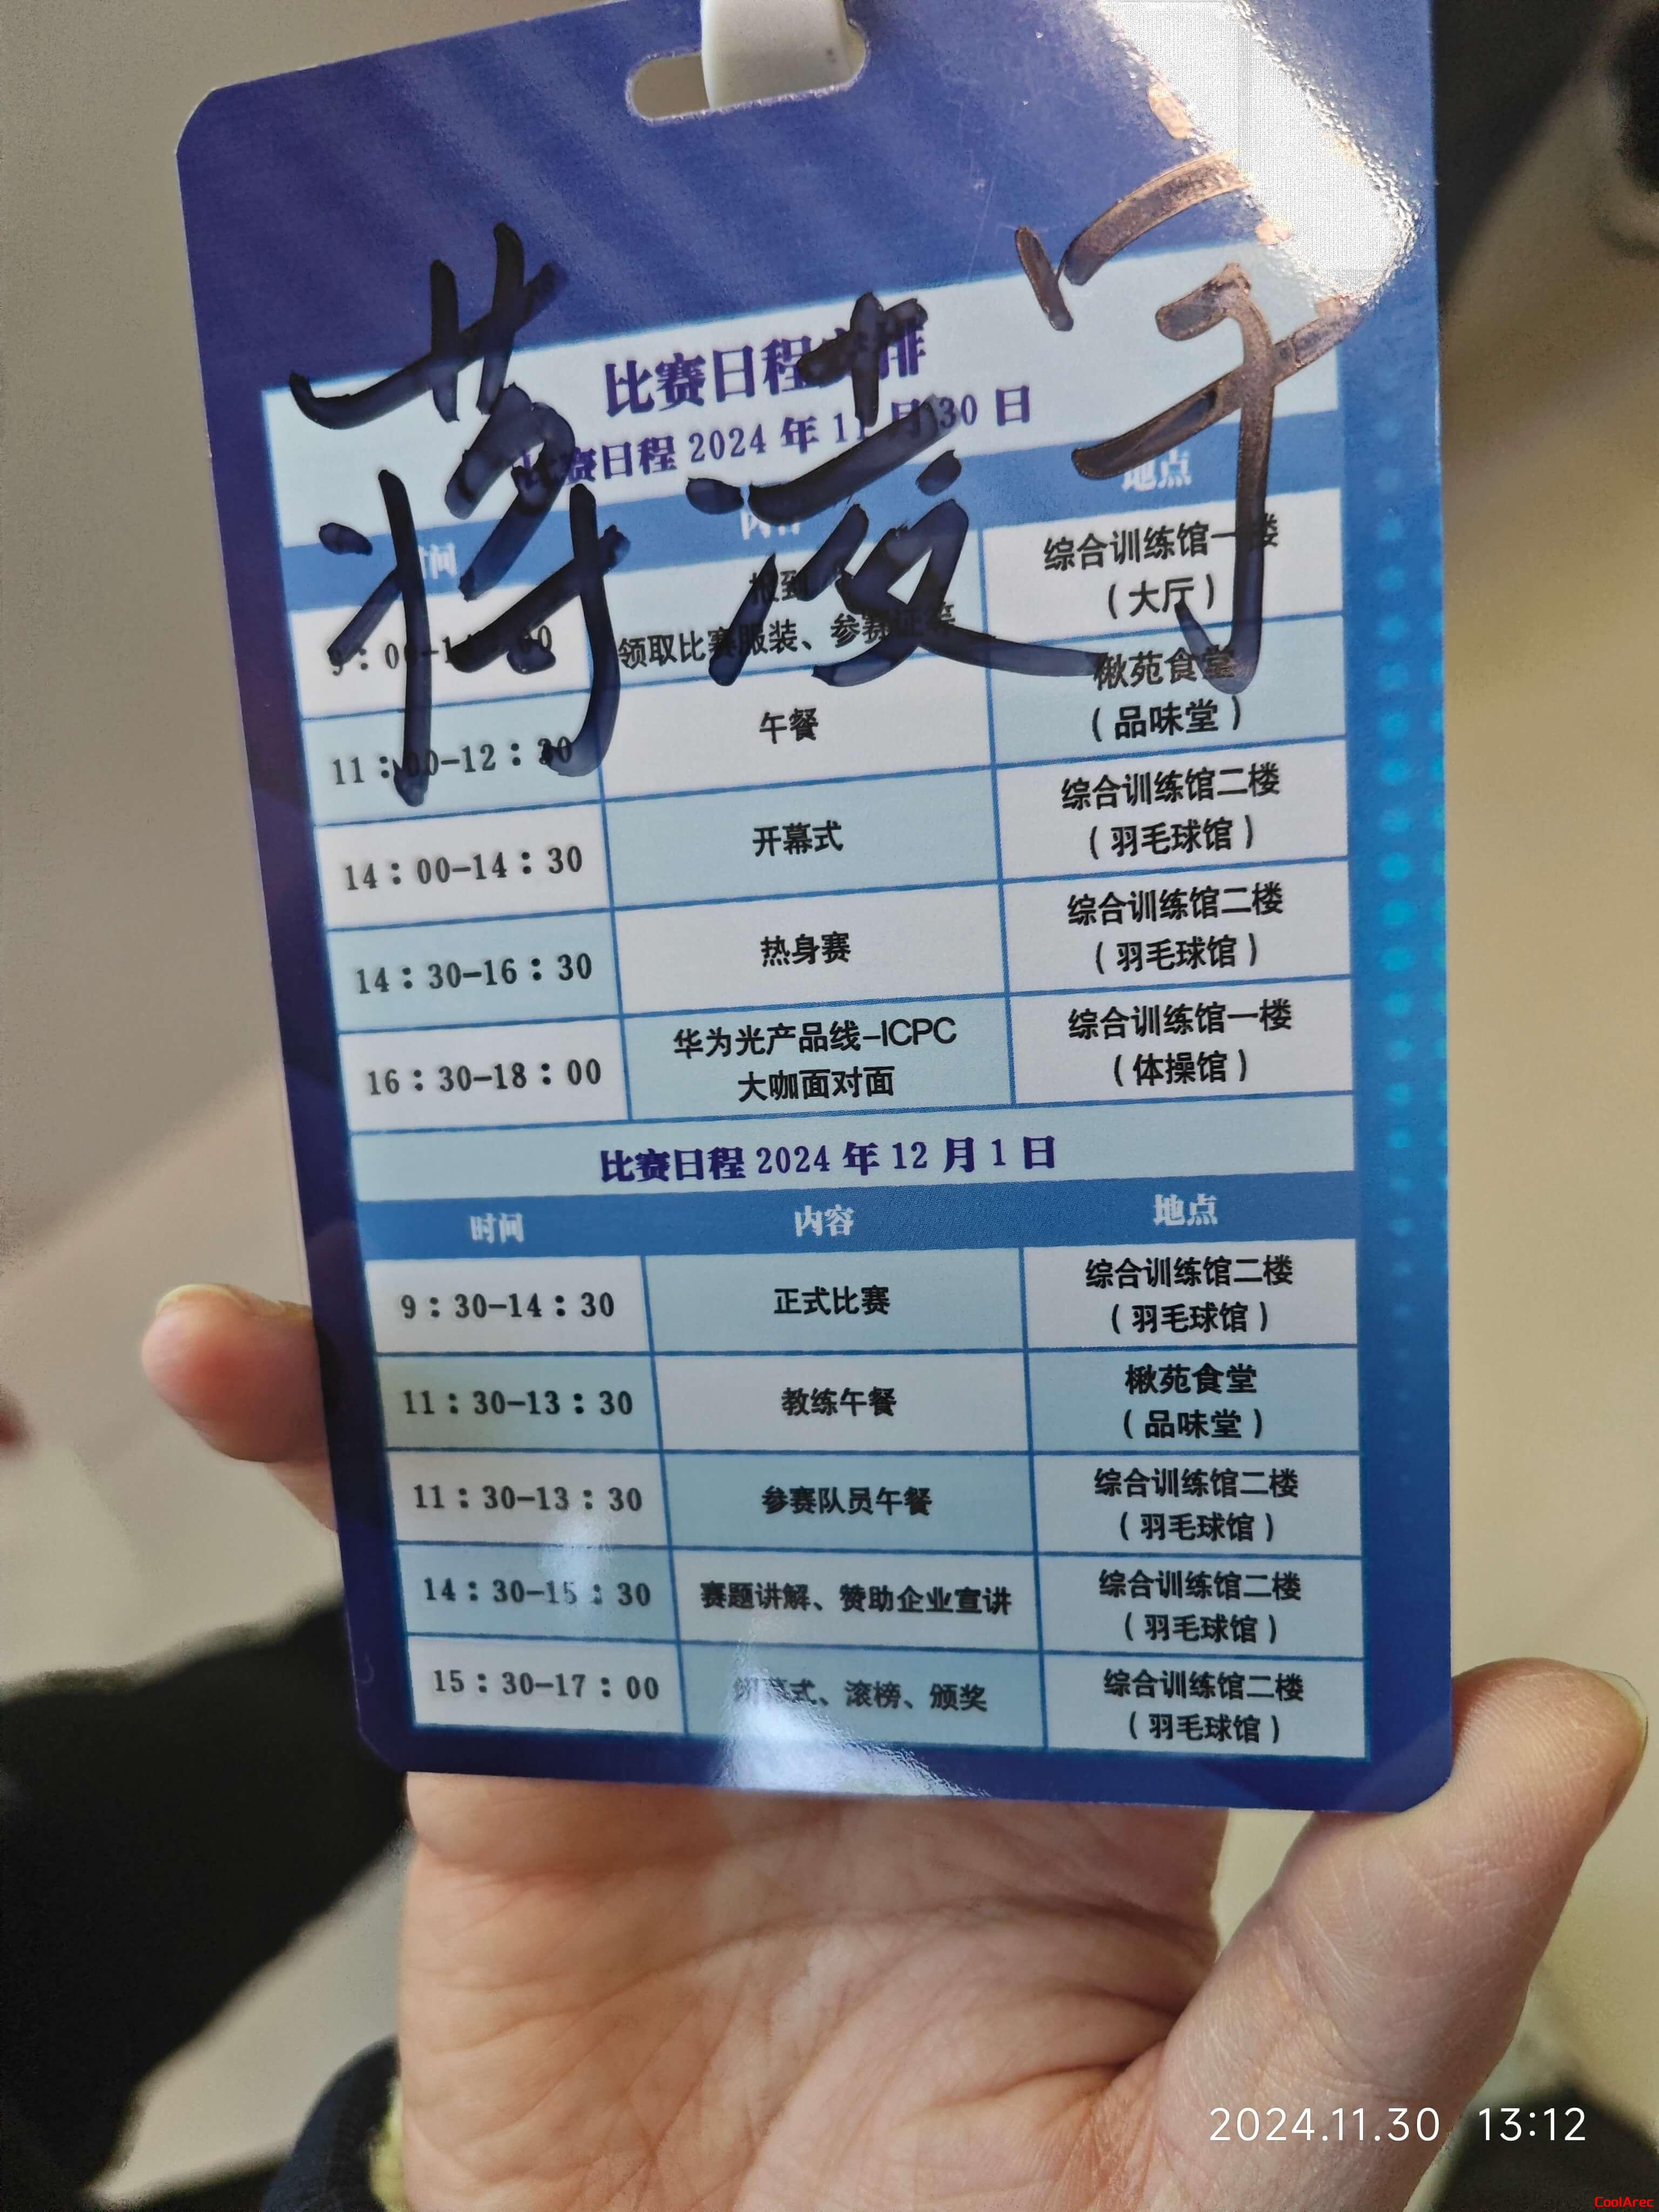 蒋凌宇
比赛日程安排
比赛日程 2024 年 11 月 30 日
时间 内容 地点
9：00-1 00 报到 综合训练馆一楼
领取比赛服装、参赛证等 （大厅）
11：00-12：30 午餐 楸苑食堂
（品味堂）
14：00-14：30 开幕式 综合训练馆二楼
（羽毛球馆）
14：30-16：30 热身赛 综合训练馆二楼
（羽毛球馆）
16：30-18：00 华为光产品线-ICPC 综合训练馆一楼
大咖面对面 （体操馆）
比赛日程 2024 年 12 月 1 日
时间 内容 地点
9：30-14：30 正式比赛 综合训练馆二楼
（羽毛球馆）
11：30-13：30 教练午餐 楸苑食堂
（品味堂）
11：30-13：30 参赛队员午餐 综合训练馆二楼
（羽毛球馆）
14：30-15：30 赛题讲解、赞助企业宣讲 综合训练馆二楼
（羽毛球馆）
15：30-17：00 闭幕式、滚榜、颁奖 综合训练馆二楼
（羽毛球馆）
2024.11.30 13:12
CoolArec